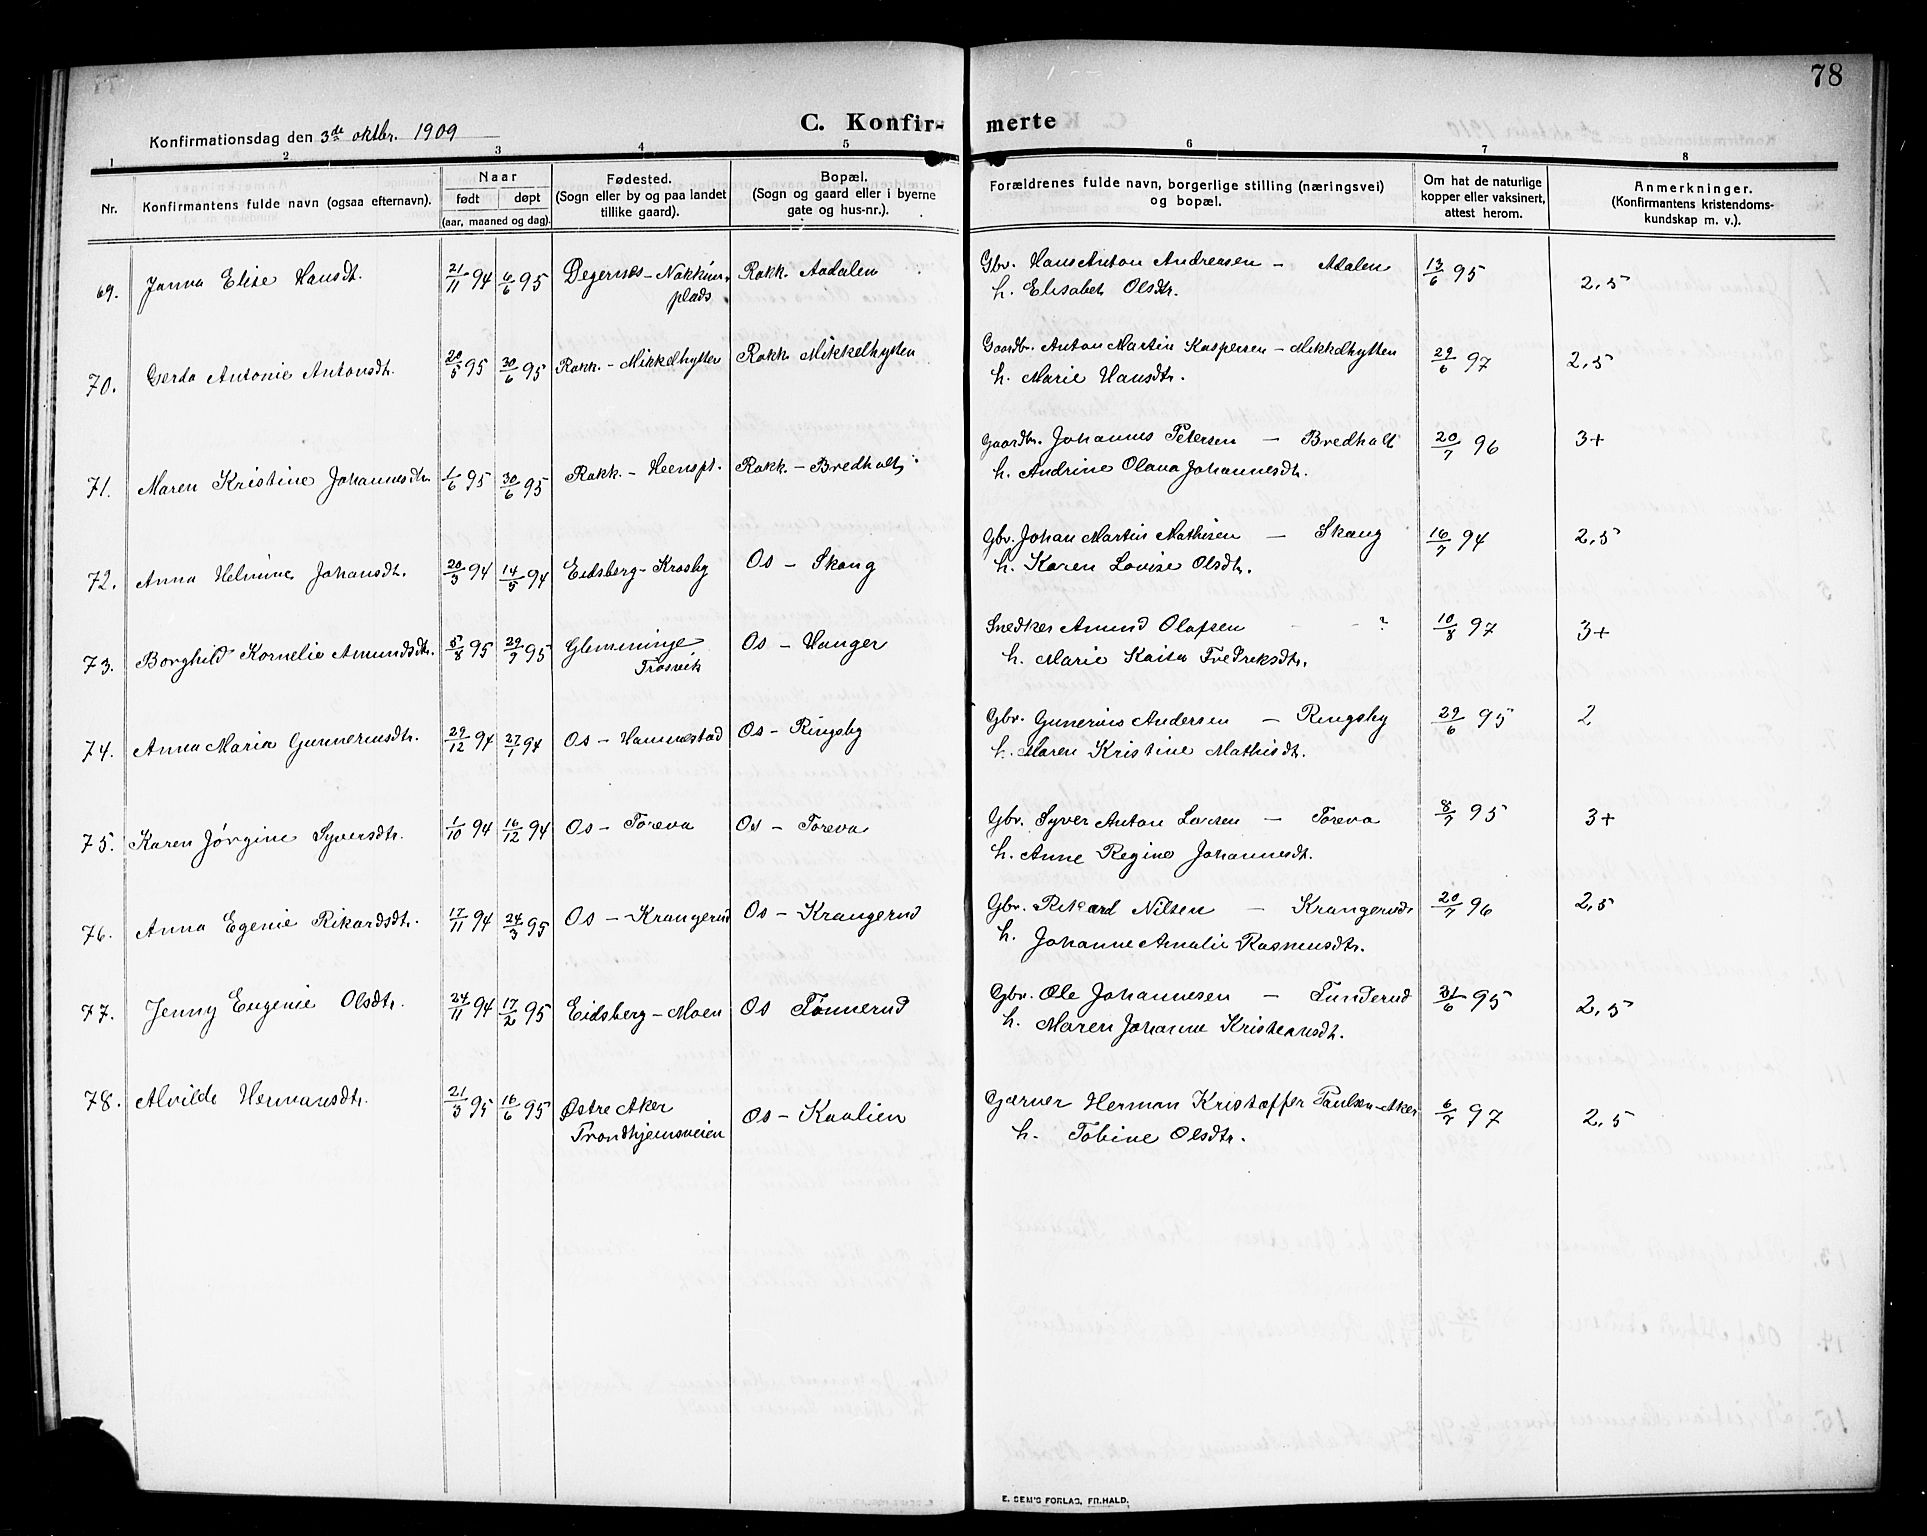 78
Konfirmationsdag den 3de oktbr. 1909
C. Konfir- merte
1 2 3 4 5 6 7 8
Nr. Konfirmantens fulde navn (ogsaa efternavn). Naar født døpt (aar, maaned og dag). Fødested. (Sogn eller by og paa landet tillike gaard). Bopæl. (Sogn og gaard eller i byerne gate og hus-nr.). Forældrenes fulde navn, borgerlige stilling (næringsvei) og bopæl. Om hat de naturlige kopper eller vaksinert, attest herom. Anmerkninger. (Konfirmantens kristendoms- kundskap m. v.).
69. Janna Elise Hansdt. 21/11 94 6/6 95 Degernes - Rakk. Aadalen Gbr. Hans Anton Andreasen - Adalen 13/6 95 2,5
plads h. Elisabet Olsdtr.
70. Gerda Antonie Antonsdt. 20/5 95 30/6 95 Rakk. - Mikkelhytten Rakk Mikkelhytten Gaardbr. Anton Martin Kaspersen - Mikkelhytten 29/6 97 2,5
h. Marie Hansdtr.
71. Maren Kristine Johannesdtr. 1/6 95 30/6 95 Rakk. - Heenspl. Rakk - Bredholt Gaardbr. Johannes Petersen - Bredholt 20/7 96 3+
h. Andrine Olava Johannesdtr.
72. Anna Helmine Johansdt. 20/3 94 14/5 94 Eidsberg - Krosby Os - Skaug Gbr. Johan Martin Mathisen - Skaug 16/7 94 2,5
h. Karen Lovise Olsdtr.
73. Borghild Kornelie Amundsdtr. 5/8 95 29/9 95 Glemminge Os - Hanger Snedker Amund Olafsen - - ? 10/8 97 3+
Trosvik h. Marie Kaisa Fredreksdtr.
74. Anna Maria Gunneriusdtr. 29/12 94 27/1 94 Os - Hannestad Os - Ringsby Gbr. Gunerius Andersen - Ringsby 29/6 95 2
h. Maren Kristine Mathisdtr.
75. Karen Jørgine Syversdtr. 1/10 94 16/12 94 Os - Toreva Os - Toreva Gbr. Syver Anton Larsen - Toreva 8/7 95 3+
h. Anne Regine Johannesdt.
76. Anna Egenie Rikardsdtr. 17/11 94 24/3 95 Os - Krangerud Os - Krangerud Gbr. Rikard Nilsen - Krangerud 20/7 96 2,5
h. Johanne Amalie Rasmusdtr.
77. Jenny Eugenie Olsdtr. 24/11 94 17/2 95 Eidsberg - Moen Os Tønnerud Gbr. Ole Johannesen - 31/6 95 2,5
h. Maren Johanne Kristiansdt.
78. Alvilde Hermansdtr. 21/3 95 16/6 95 Østre Aker Os - Kaalien Gærner Herman Kristoffer Paulsen - Aker 6/7 97 2,5
Trondhjemsveien h. Tobine Olsdtr.
E. SEM'S FORLAG, FR.HALD.